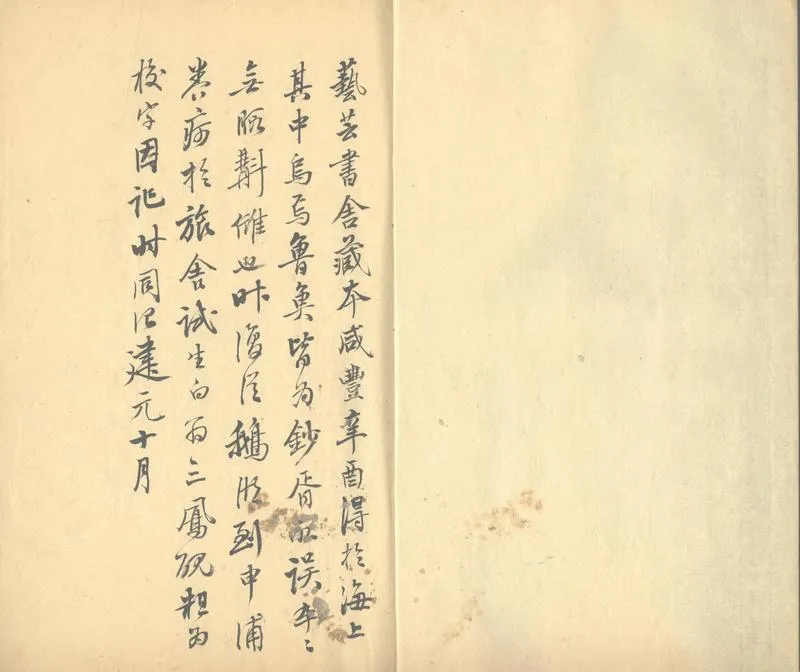 藝芸書舍藏本咸豐辛酉得於海上
其中烏焉魯魚皆為鈔胥所誤卒〻
無暇斠讎也時復從鵝湖到申浦
養疴於旅舍試生白翁三鳳硯粗為
校字因記时同治建元十月